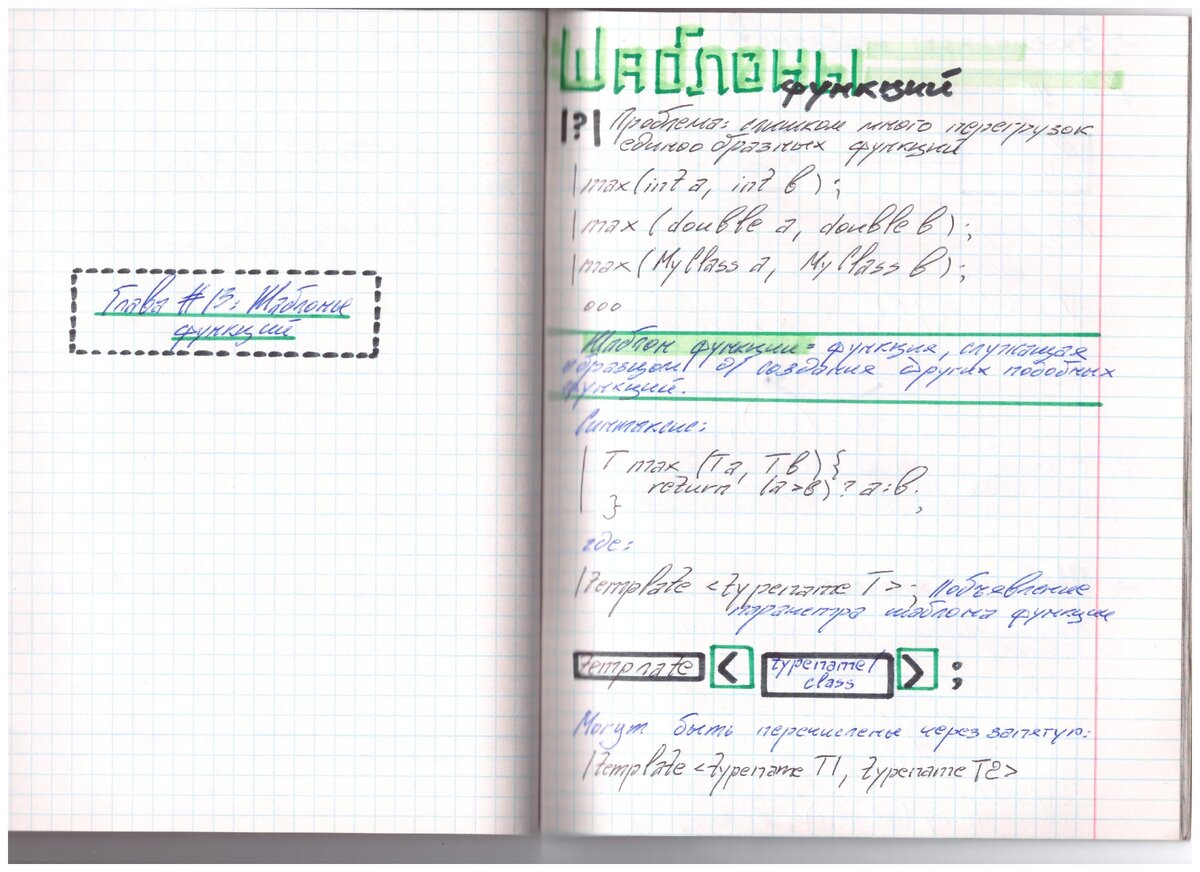 Глава #13: Шаблоны
функций
Шаблоны
функций
|?| Проблема: слишком много перегрузок
единообразных функций
max(int a, int b);
max (double a, double b);
max (MyClass a, MyClass b);
ooo
Шаблон функции = функция, служащая
образцом д/ создания других подобных
функций.
Синтаксис:
T max (T a, T b) {
return (a>b) ? a : b;
}
где:
template <typename T>; //объявление
параметра шаблона функции
template < typename/
class > ;
Могут быть перечислены через запятую:
template <typename T1, typename T2>